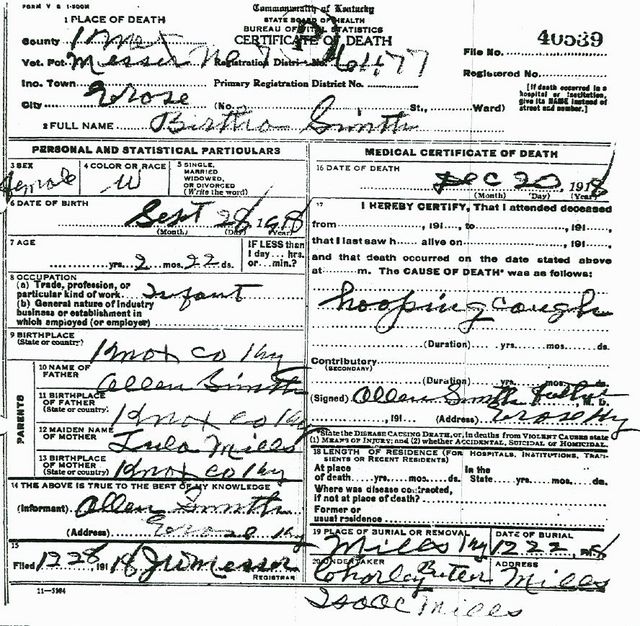 FORM V S 1-500M
Commonwealth of Kentucky
STATE BOARD OF HEALTH
BUREAU OF VITAL STATISTICS
CERTIFICATE OF DEATH
1 PLACE OF DEATH
County Knox
File No. 40539
Vot. Pct. Messer No 7 Registration District No. 6477
Registered No.
Inc. Town Primary Registration District No.
[If death occurred in a hospital or institution, give its NAME instead of street and number.]
City Erose (No. St., Ward)
2 FULL NAME Birtha Smith
PERSONAL AND STATISTICAL PARTICULARS
3 SEX
female
4 COLOR OR RACE
W
5 SINGLE,
MARRIED
WIDOWED,
OR DIVORCED
(Write the word)
6 DATE OF BIRTH
Sept 28 1918
(Month) (Day) (Year)
7 AGE
yrs. 2 mos. 22 ds.
IF LESS than
1 day hrs.
or min.?
8 OCCUPATION
(a) Trade, profession, or
particular kind of work
Infant
(b) General nature of industry
business or establishment in
which employed (or employer)
9 BIRTHPLACE
(State or country)
Knox co Ky
PARENTS
10 NAME OF
FATHER
Allen Smith
11 BIRTHPLACE
OF FATHER
(State or country)
Knox co Ky
12 MAIDEN NAME
OF MOTHER
Lula Mills
13 BIRTHPLACE
OF MOTHER
(State or country)
Knox co Ky
14 THE ABOVE IS TRUE TO THE BEST OF MY KNOWLEDGE
(Informant) Allen Smith
(Address) Erose Ky
15
Filed 12 28, 1918 J W Messer
REGISTRAR
11-5184
MEDICAL CERTIFICATE OF DEATH
16 DATE OF DEATH
Dec 20, 1918
(Month) (Day) (Year)
17 I HEREBY CERTIFY, That I attended deceased
from , 191 , to , 191 ,
that I last saw h alive on , 191 ,
and that death occurred on the date stated above
at m. The CAUSE OF DEATH* was as follows:
hooping cough
(Duration) yrs. mos. ds.
Contributory
(SECONDARY)
(Duration) yrs. mos. ds.
(Signed) Allen Smith father
, 191 (Address) Erose Ky
*State the DISEASE CAUSING DEATH, or, in deaths from VIOLENT CAUSES state
(1) MEANS OF INJURY; and (2) whether ACCIDENTAL, SUICIDAL or HOMICIDAL.
18 LENGTH OF RESIDENCE (FOR HOSPITALS, INSTITUTIONS, TRANSIENTS OR RECENT RESIDENTS)
At place
of death yrs. mos. ds.
In the
State yrs. mos. ds.
Where was disease contracted,
if not at place of death?
Former or
usual residence
19 PLACE OF BURIAL OR REMOVAL
Mills Ky
DATE OF BURIAL
12 22, 1918
20 UNDERTAKER
Charley Butler Mills
ADDRESS
Isaac Mills